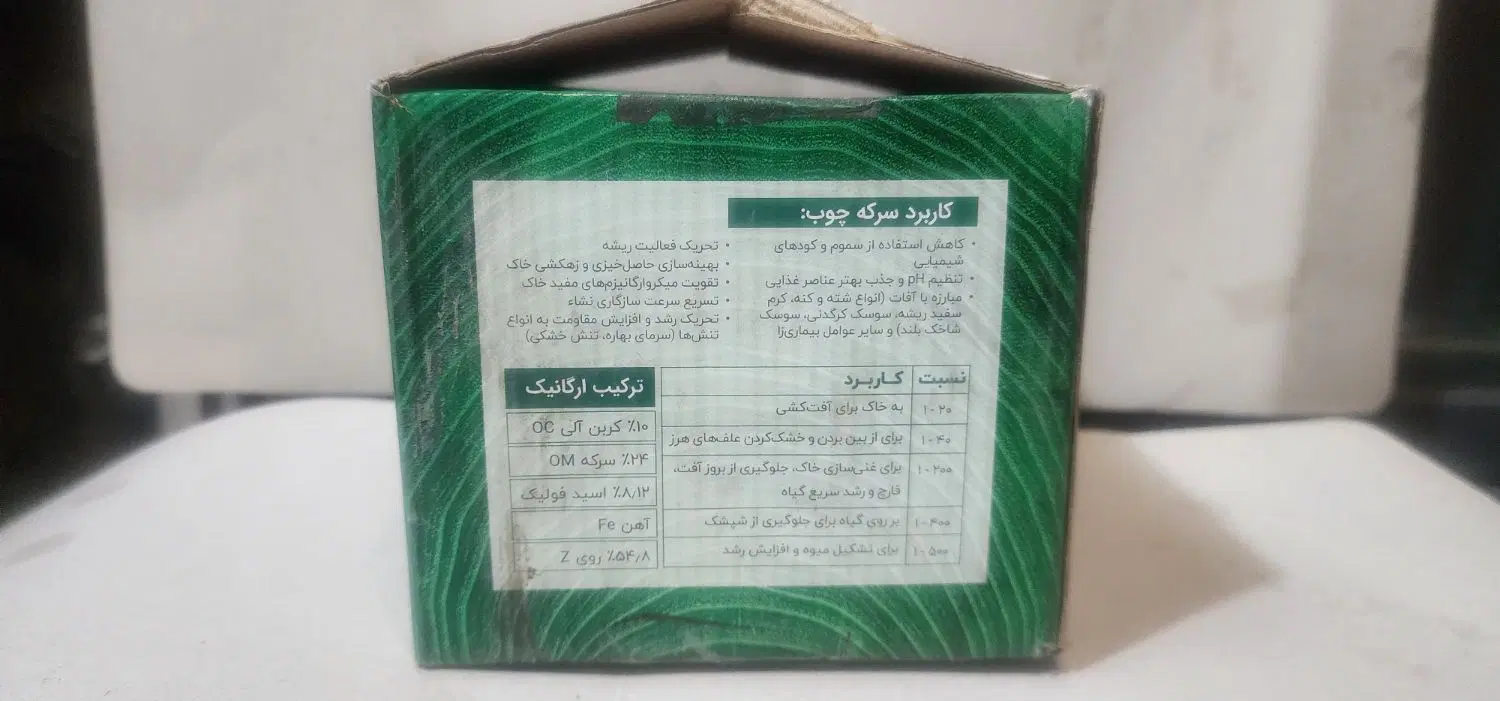 کاربرد سرکه چوب:
• کاهش استفاده از سموم و کودهای
شیمیایی
• تنظیم pH و جذب بهتر عناصر غذایی
• مبارزه با آفات (انواع شته و کنه، کرم
سفید ریشه، سوسک کرگدنی، سوسک
شاخک بلند) و سایر عوامل بیماری‌زا
• تحریک فعالیت ریشه
• بهینه‌سازی حاصل‌خیزی و زهکشی خاک
• تقویت میکروارگانیزم‌های مفید خاک
• تسریع سرعت سازگاری نشاء
• تحریک رشد و افزایش مقاومت به انواع
تنش‌ها (سرمای بهاره، تنش خشکی)
نسبت کاربرد
۱-۲۰ به خاک برای آفت‌کشی
۱-۴۰ برای از بین بردن و خشک‌کردن علف‌های هرز
۱-۲۰۰ برای غنی‌سازی خاک، جلوگیری از بروز آفت،
قارچ و رشد سریع گیاه
۱-۴۰۰ بر روی گیاه برای جلوگیری از شپشک
۱-۵۰۰ برای تشکیل میوه و افزایش رشد
ترکیب ارگانیک
۱۰٪ کربن آلی OC
۲۴٪ سرکه OM
۸٫۱۲٪ اسید فولیک
آهن Fe
۵۴٫۸٪ روی Z